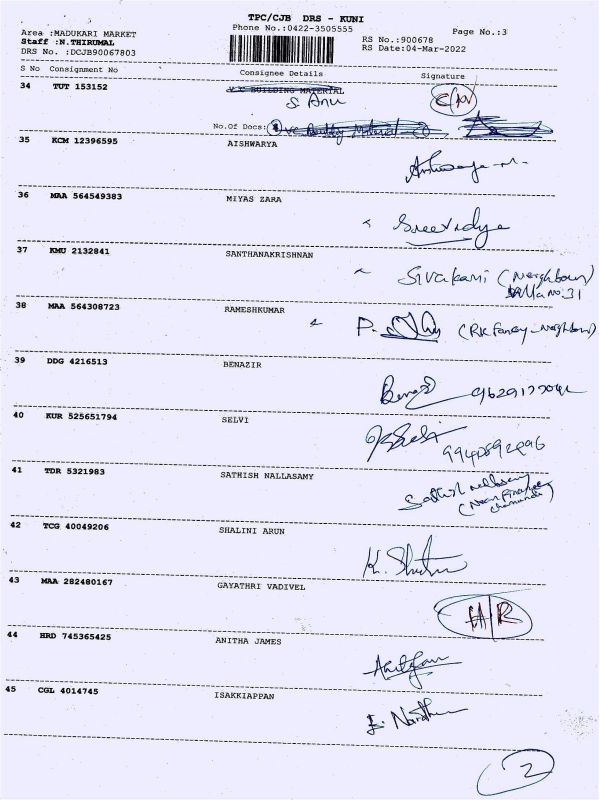 TPC/CJB DRS - KUNI
Phone No.:0422-3505555
Page No.:3
Area :MADUKARI MARKET
Staff :N.THIRUMAL
DRS No. :DCJB90067803
RS No.:900678
RS Date:04-Mar-2022
S No Consignment No Consignee Details Signature
34 TUT 153152 V.C BUILDING MATERIAL
S. Anu
No.Of Docs:
35 KCM 12396595 AISHWARYA
36 MAA 564549383 MIYAS ZARA
Sreevidya
37 KMU 2132841 SANTHANAKRISHNAN
Sivakami (Neighbour)
Villa no. 31
38 MAA 564308723 RAMESHKUMAR
P. (RK Fancy - Neighbour)
39 DDG 4216513 BENAZIR
40 KUR 525651794 SELVI
41 TDR 5321983 SATHISH NALLASAMY
Sathish nallasamy
42 TCG 40049206 SHALINI ARUN
43 MAA 282480167 GAYATHRI VADIVEL
H/R
44 HRD 745365425 ANITHA JAMES
45 CGL 4014745 ISAKKIAPPAN
2